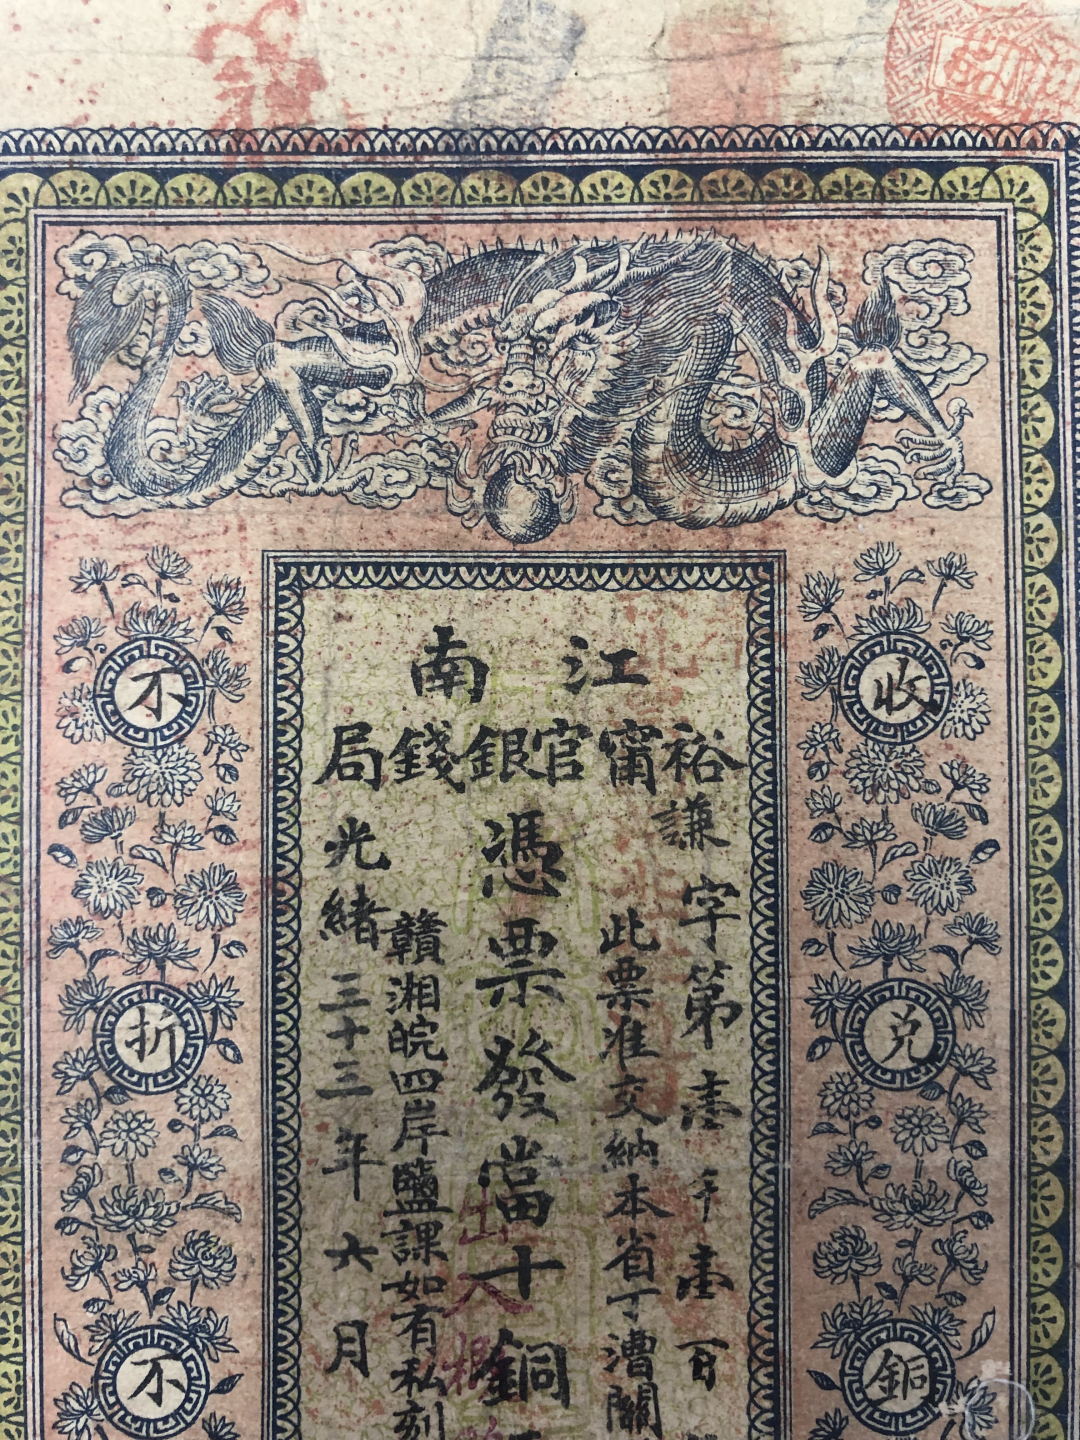 江南
裕甯官銀錢局
謙字第壹千壹百
此票准交納本省丁漕關
憑票發當十銅
贛湘皖四岸鹽課如有私刻
光緒三十三年六月
收兌銅
不折不
出入概